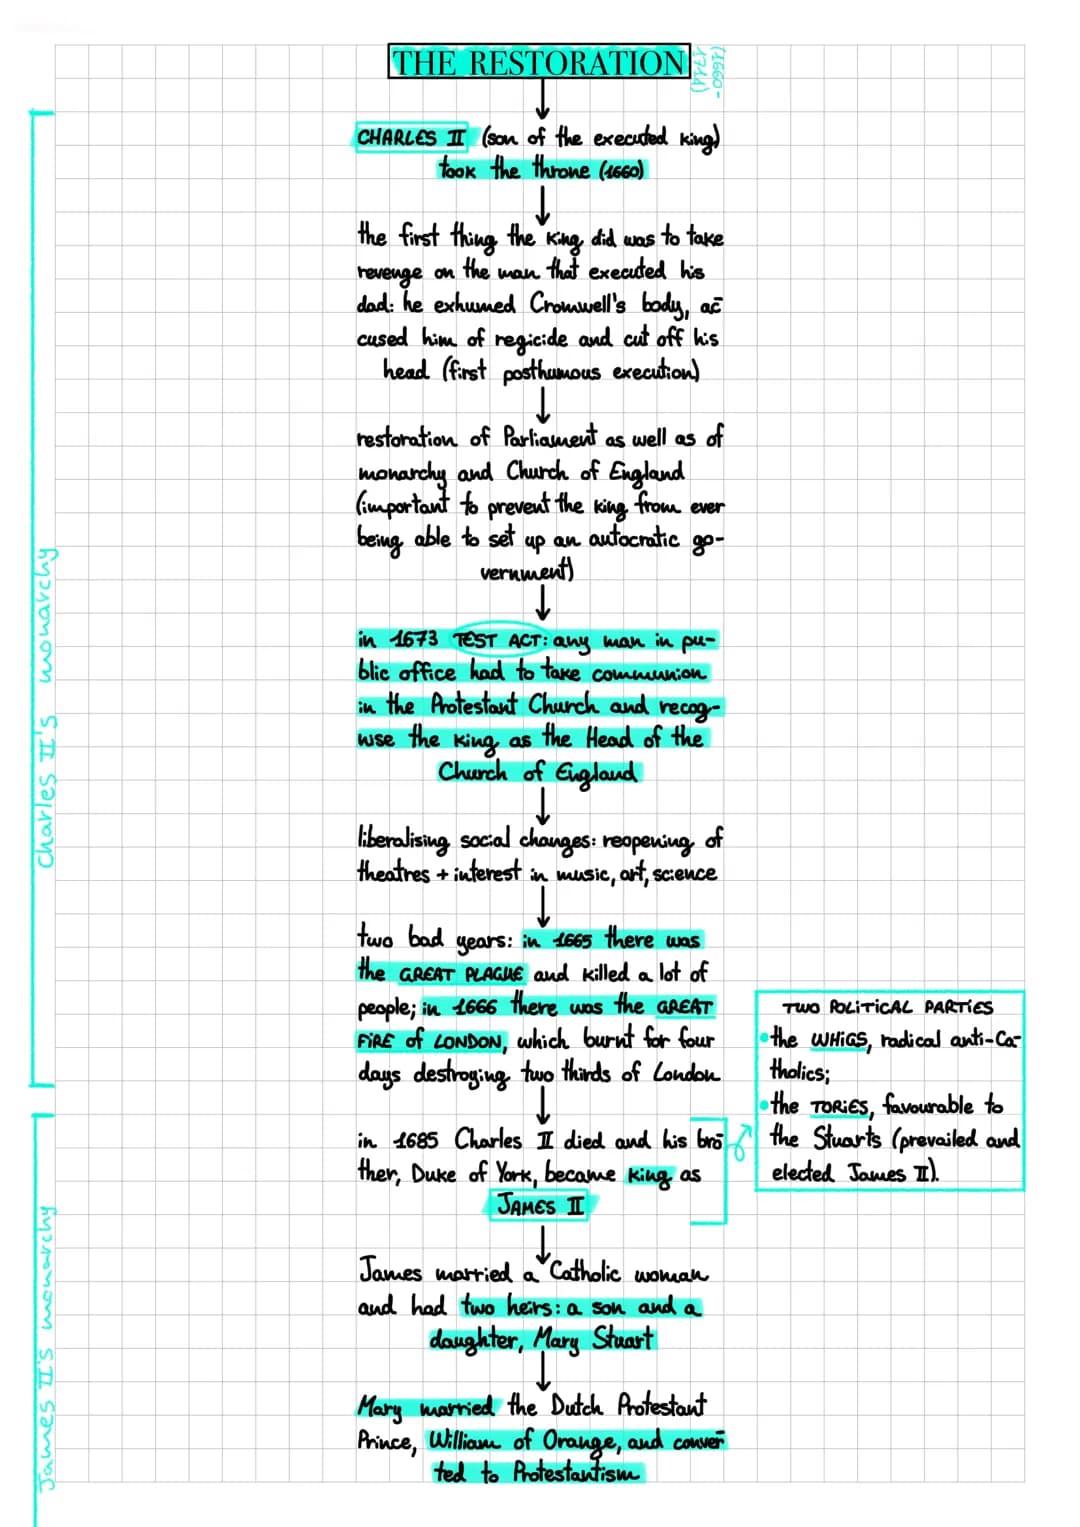 THE RESTORATION
(1660-
1714)
CHARLES II (son of the executed king)
took the throne (1660)
the first thing the king did was to take
revenge on the man that executed his
dad: he exhumed Cromwell's body, ac
cused him of regicide and cut off his
head (first posthumous execution)
restoration of Parliament as well as of
monarchy and Church of England
(important to prevent the king from ever
being able to set up an autocratic go-
vernment)
in 1673 TEST ACT: any man in pu-
blic office had to take communion
in the Protestant Church and recog-
nise the king as the Head of the
Church of England
liberalising social changes: reopening of
theatres + interest in music, art, science
two bad years: in 1665 there was
the GREAT PLAGUE and killed a lot of
people; in 1666 there was the GREAT
FIRE of LONDON, which burnt for four
days destroying two thirds of London
Charles II's monarchy
in 1685 Charles II died and his bro
ther, Duke of York, became king as
JAMES II
TWO POLITICAL PARTIES
• the WHIGS, radical anti-Ca-
tholics;
• the TORIES, favourable to
the Stuarts (prevailed and
elected James II).
James married a Catholic woman
and had two heirs: a son and a
daughter, Mary Stuart
Mary married the Dutch Protestant
Prince, William of Orange, and conver
ted to Protestantism
James II's monarchy